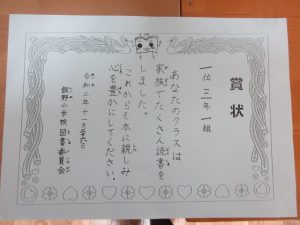 賞状
一位 三年 一組
あなたのクラスは
家族でたくさん読書を
しました。
これからも本に親しみ
心を豊かにしてください。
令和二年十一月
飯野小学校図書委員会